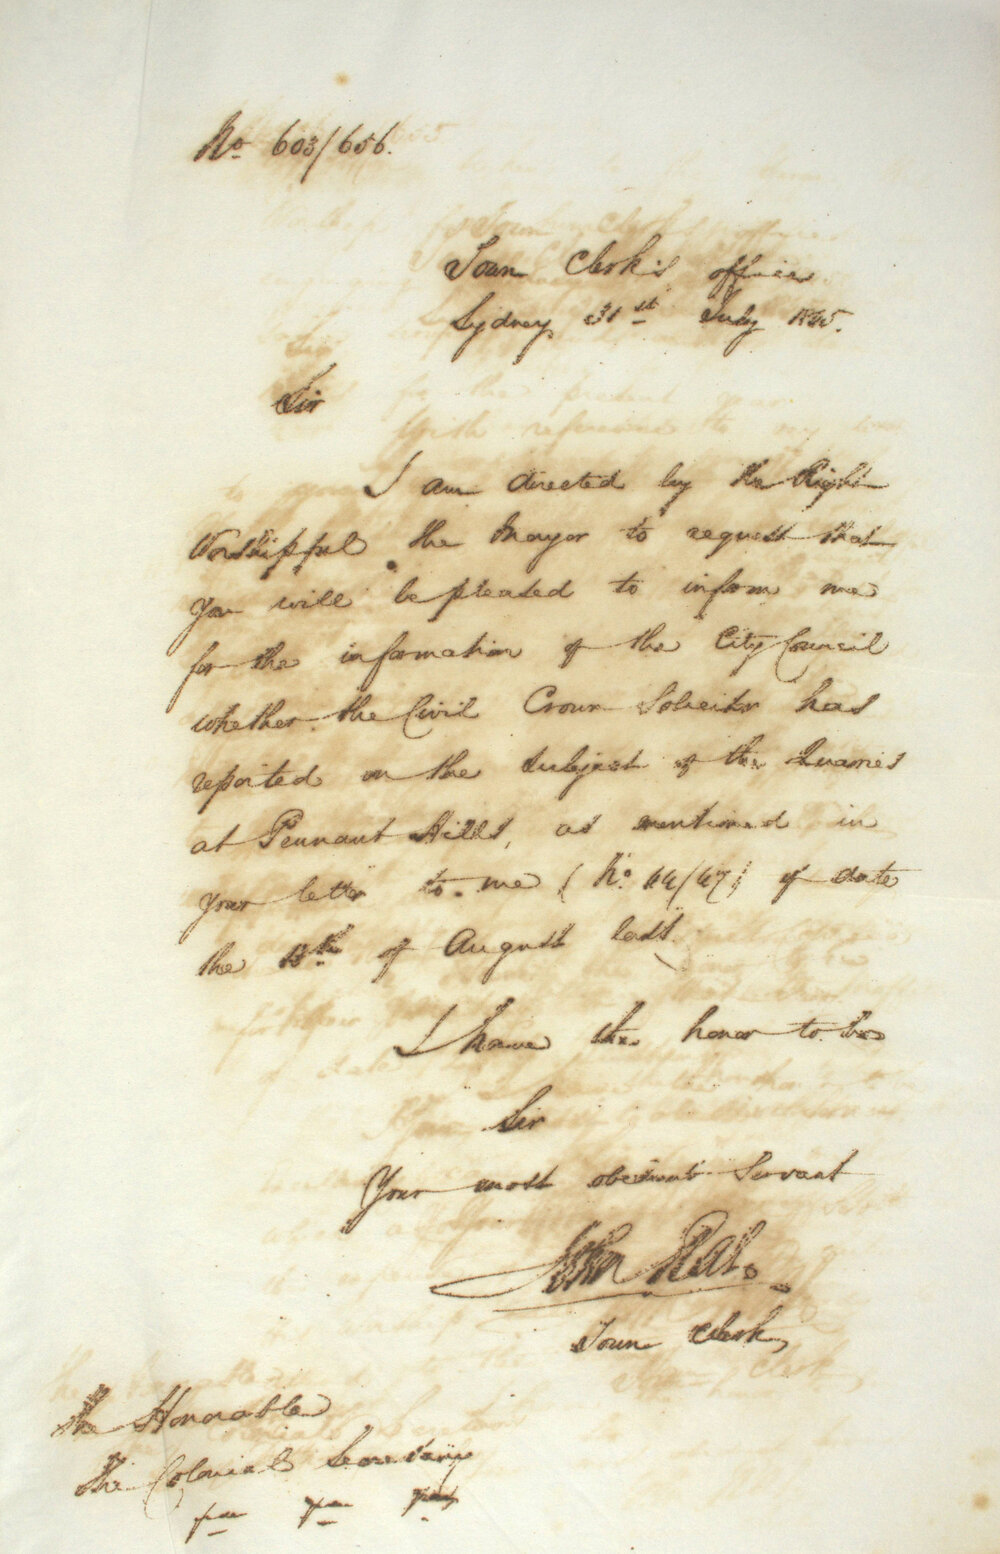 No. 603/656.
Town Clerk's office
Sydney 31st July 1845.
Sir
I am directed by the Right
Worshipful the Mayor to request that
you will be pleased to inform me
for the information of the City Council
whether the Civil Crown Solicitor has
reported on the subject of the Quarries
at Pennant Hills, as mentioned in
your letter to me (No. 44/47) of date
the 13th of August last.
I have the honor to be
Sir
Your most obedient Servant
John
Town Clerk
The Honorable
The Colonial Secretary